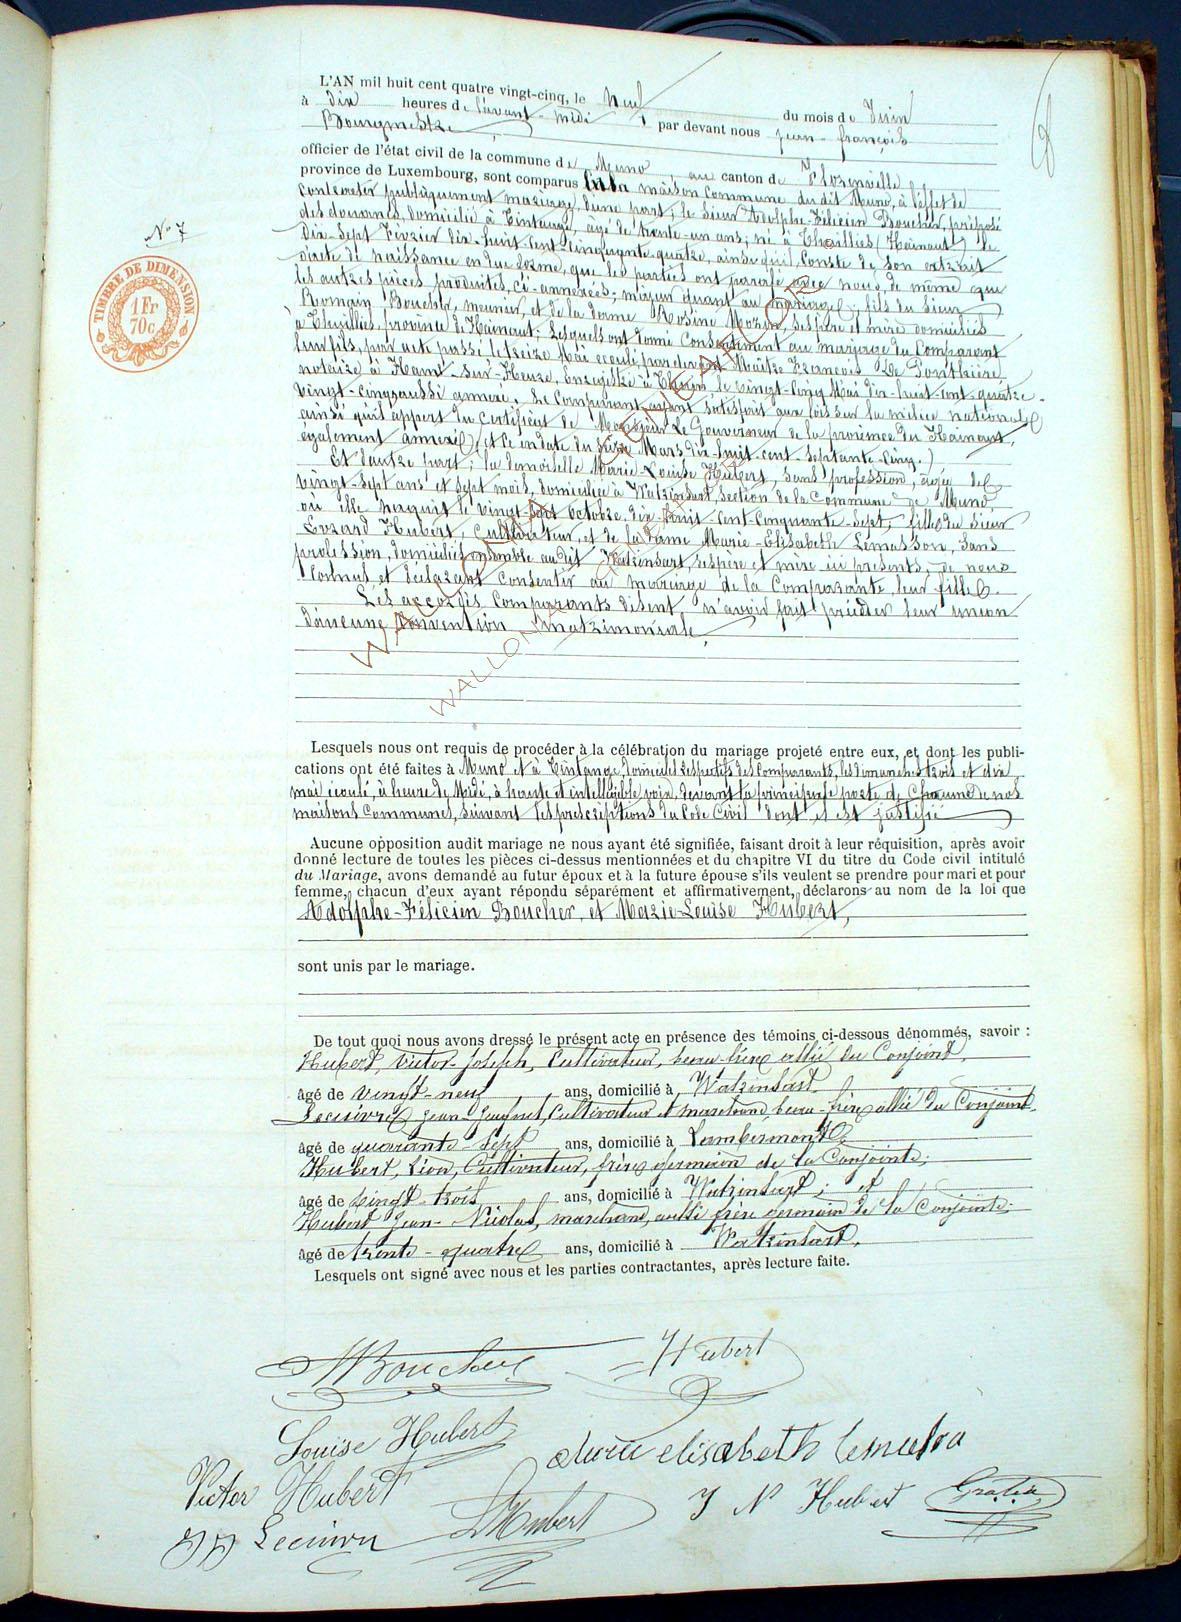 L'AN mil huit cent quatre vingt-cinq, le Neuf du mois de Juin
à Dix heures de l'avant-midi par devant nous Jean-François
Bourgmestre
officier de l'état civil de la commune de Muno, au canton de Florenville
province de Luxembourg, sont comparus en la maison commune du dit Muno, à l'effet de
contracter publiquement mariage, d'une part; le sieur Adolphe-Félicien Boucher, préposé
des douanes, domicilié à Tintange, âgé de trente-un ans; né à Thuillies (Hainaut) le
Dix-Sept Février dix-huit cent cinquante-quatre, ainsi qu'il conste de son extrait
d'acte de naissance en due forme, que les parties ont paraphé avec nous, de même que
les autres pièces produites, ci-annexées; majeur quant au mariage, fils du sieur
Romain Boucher, meunier, et de la dame Rosine Morin, ses père et mère domiciliés
à Thuillies, province de Hainaut; Lesquels ont donné consentement au mariage du Comparant
leur fils, par acte passé le treize Mai écoulé, par devant Maître François De Ponthière
notaire à Ham-sur-Heure, Enregistré à Thuin le vingt-cinq Mai dix-huit-cent-quatre-
vingt-cinq, aussi annexé. Le Comparant ayant satisfait aux lois sur la milice nationale
ainsi qu'il appert du Certificat de Monsieur Le Gouverneur de la province du Hainaut,
également annexé, et ce en date du Seize Mars dix-huit-cent-septante-cinq.)
Et d'autre part; la demoiselle Marie-Louise Hubert, sans profession, âgée de
vingt-sept ans et sept mois, domiciliée à Watrinsart, section de la Commune de Muno
où elle naquit le vingt-sept Octobre dix-huit-cent-cinquante-sept, fille du sieur
Evrard Hubert, Cultivateur, et de la dame Marie-Elisabeth Lemasson, Sans
profession, domiciliés ensemble au dit Watrinsart, ses père et mère ici présents, de nous
Connus, et déclarant Consentir au mariage de la Comparante, leur fille.
Les accordés Comparants disent n'avoir fait précéder leur union
d'aucune Convention matrimoniale,
N° 7
TIMBRE DE DIMENSION
1 Fr
70c
WALLONIA GENEAFLOR
WALLONIA
Lesquels nous ont requis de procéder à la célébration du mariage projeté entre eux, et dont les publi-
cations ont été faites à Muno et à Tintange, domiciles respectifs des Comparants, les dimanches trois et dix
mai écoulé, à heure de Midi, à haute et intelligible voix, devant la principale porte de Chacune de nos
maisons Communes, suivant les prescriptions du Code Civil dont il est justifié
Aucune opposition audit mariage ne nous ayant été signifiée, faisant droit à leur réquisition, après avoir
donné lecture de toutes les pièces ci-dessus mentionnées et du chapitre VI du titre du Code civil intitulé
du Mariage, avons demandé au futur époux et à la future épouse s'ils veulent se prendre pour mari et pour
femme, chacun d'eux ayant répondu séparément et affirmativement, déclarons au nom de la loi que
Adolphe-Félicien Boucher, et Marie-Louise Hubert,
sont unis par le mariage.
De tout quoi nous avons dressé le présent acte en présence des témoins ci-dessous dénommés, savoir :
Hubert, Victor-Joseph, Cultivateur, beau-frère allié du Conjoint,
âgé de vingt-neuf ans, domicilié à Watrinsart
Lecuivre, Jean-Joseph, Cultivateur et marchand, beau-frère allié du Conjoint
âgé de quarante-sept ans, domicilié à Lambermont
Hubert, Léon, Cultivateur, frère germain de la Conjointe;
âgé de vingt-trois ans, domicilié à Watrinsart; et
Hubert Jean-Nicolas, marchand, aussi frère germain de la Conjointe;
âgé de trente-quatre ans, domicilié à Watrinsart,
Lesquels ont signé avec nous et les parties contractantes, après lecture faite.
ABoucher Hubert
Louise Hubert
Marie elisabeth
Victor Hubert
LHubert J N Hubert
JJ Lecuivre